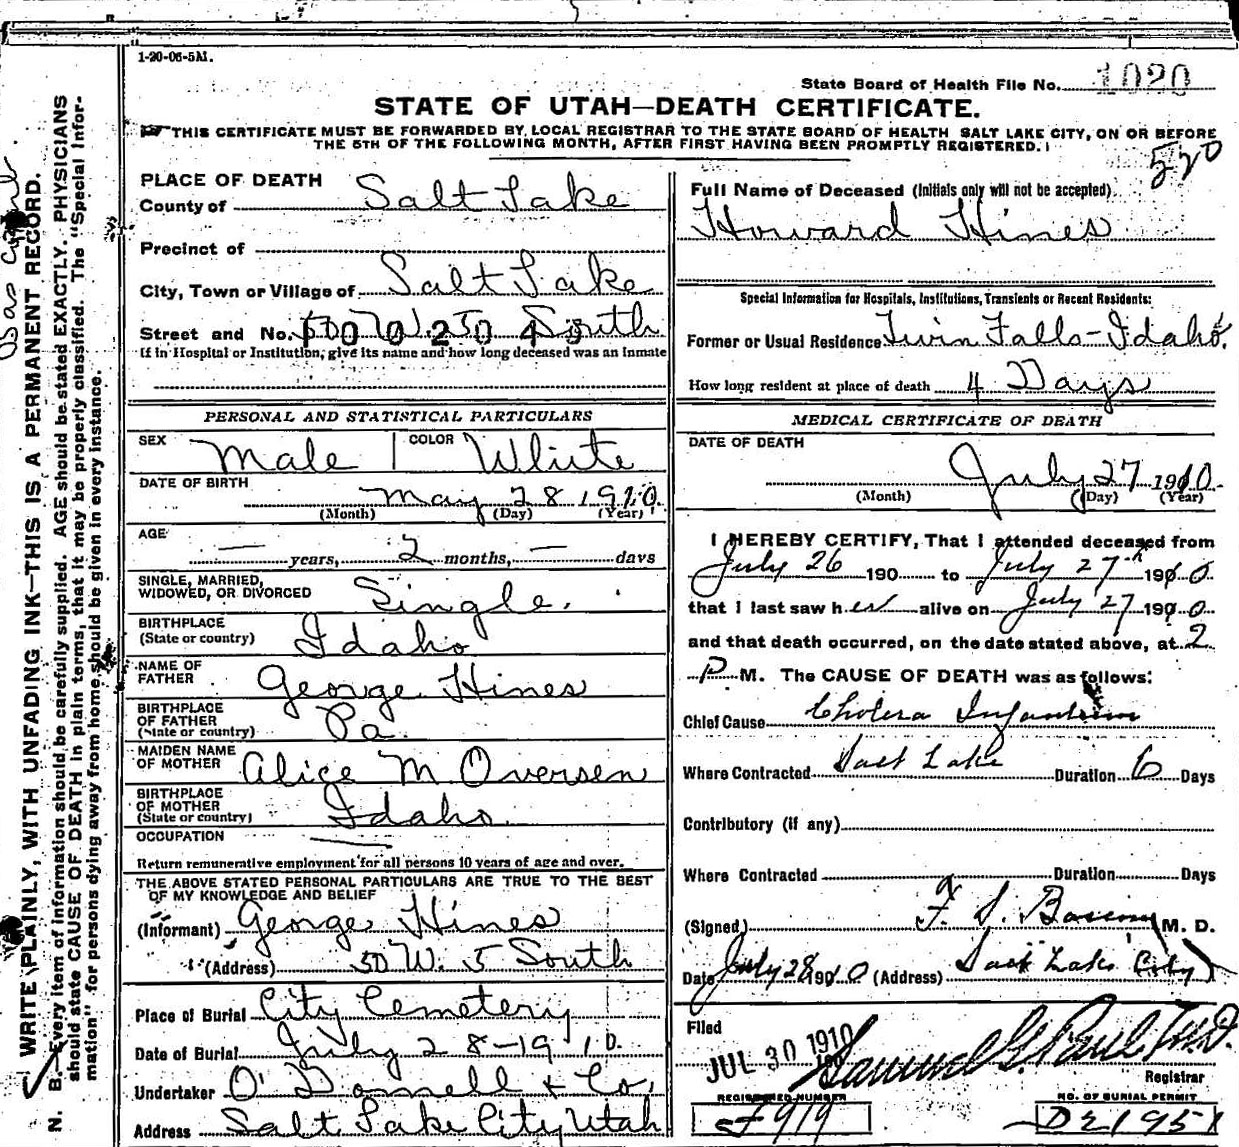 1-20-06-5M.
State Board of Health File No. 1020
STATE OF UTAH—DEATH CERTIFICATE.
THIS CERTIFICATE MUST BE FORWARDED BY LOCAL REGISTRAR TO THE STATE BOARD OF HEALTH SALT LAKE CITY, ON OR BEFORE
THE 5TH OF THE FOLLOWING MONTH, AFTER FIRST HAVING BEEN PROMPTLY REGISTERED.
520
PLACE OF DEATH
County of Salt Lake
Precinct of
City, Town or Village of Salt Lake
Street and No. South
If in Hospital or Institution, give its name and how long deceased was an Inmate
PERSONAL AND STATISTICAL PARTICULARS
SEX Male COLOR White
DATE OF BIRTH
May 28 1910
(Month) (Day) (Year)
AGE
— years, 2 months, — days
SINGLE, MARRIED,
WIDOWED, OR DIVORCED Single.
BIRTHPLACE
(State or country) Idaho
NAME OF
FATHER George Hines
BIRTHPLACE
OF FATHER
(State or country) Pa.
MAIDEN NAME
OF MOTHER Alice M Oversen
BIRTHPLACE
OF MOTHER
(State or country) Idaho.
OCCUPATION —
Return remunerative employment for all persons 10 years of age and over.
THE ABOVE STATED PERSONAL PARTICULARS ARE TRUE TO THE BEST
OF MY KNOWLEDGE AND BELIEF
(Informant) George Hines
(Address) 50 W. 5 South
Place of Burial City Cemetery
Date of Burial July 28-1910.
Undertaker O'Donnell & Co.
Address Salt Lake City Utah
Full Name of Deceased (Initials only will not be accepted)
Howard Hines
Special Information for Hospitals, Institutions, Transients or Recent Residents:
Former or Usual Residence Twin Falls-Idaho.
How long resident at place of death 4 Days
MEDICAL CERTIFICATE OF DEATH
DATE OF DEATH
July 27 1910.
(Month) (Day) (Year)
I HEREBY CERTIFY, That I attended deceased from
July 26 190 to July 27th 1910
that I last saw her alive on July 27 1910
and that death occurred, on the date stated above, at 2
P M. The CAUSE OF DEATH was as follows:
Chief Cause Cholera Infantum
Where Contracted Salt Lake Duration 6 Days
Contributory (if any)
Where Contracted Duration Days
(Signed) F. S. M. D.
Date July 28 1910 (Address) Salt Lake City
Filed
JUL 30 1910
Samuel G. Paul, M.D.
Registrar
REGISTERED NUMBER
F919
NO. OF BURIAL PERMIT
D2195
WRITE PLAINLY, WITH UNFADING INK—THIS IS A PERMANENT RECORD.
N. B.—Every item of information should be carefully supplied. AGE should be stated EXACTLY. PHYSICIANS
should state CAUSE OF DEATH in plain terms, that it may be properly classified. The "Special Infor-
mation" for persons dying away from home should be given in every instance.